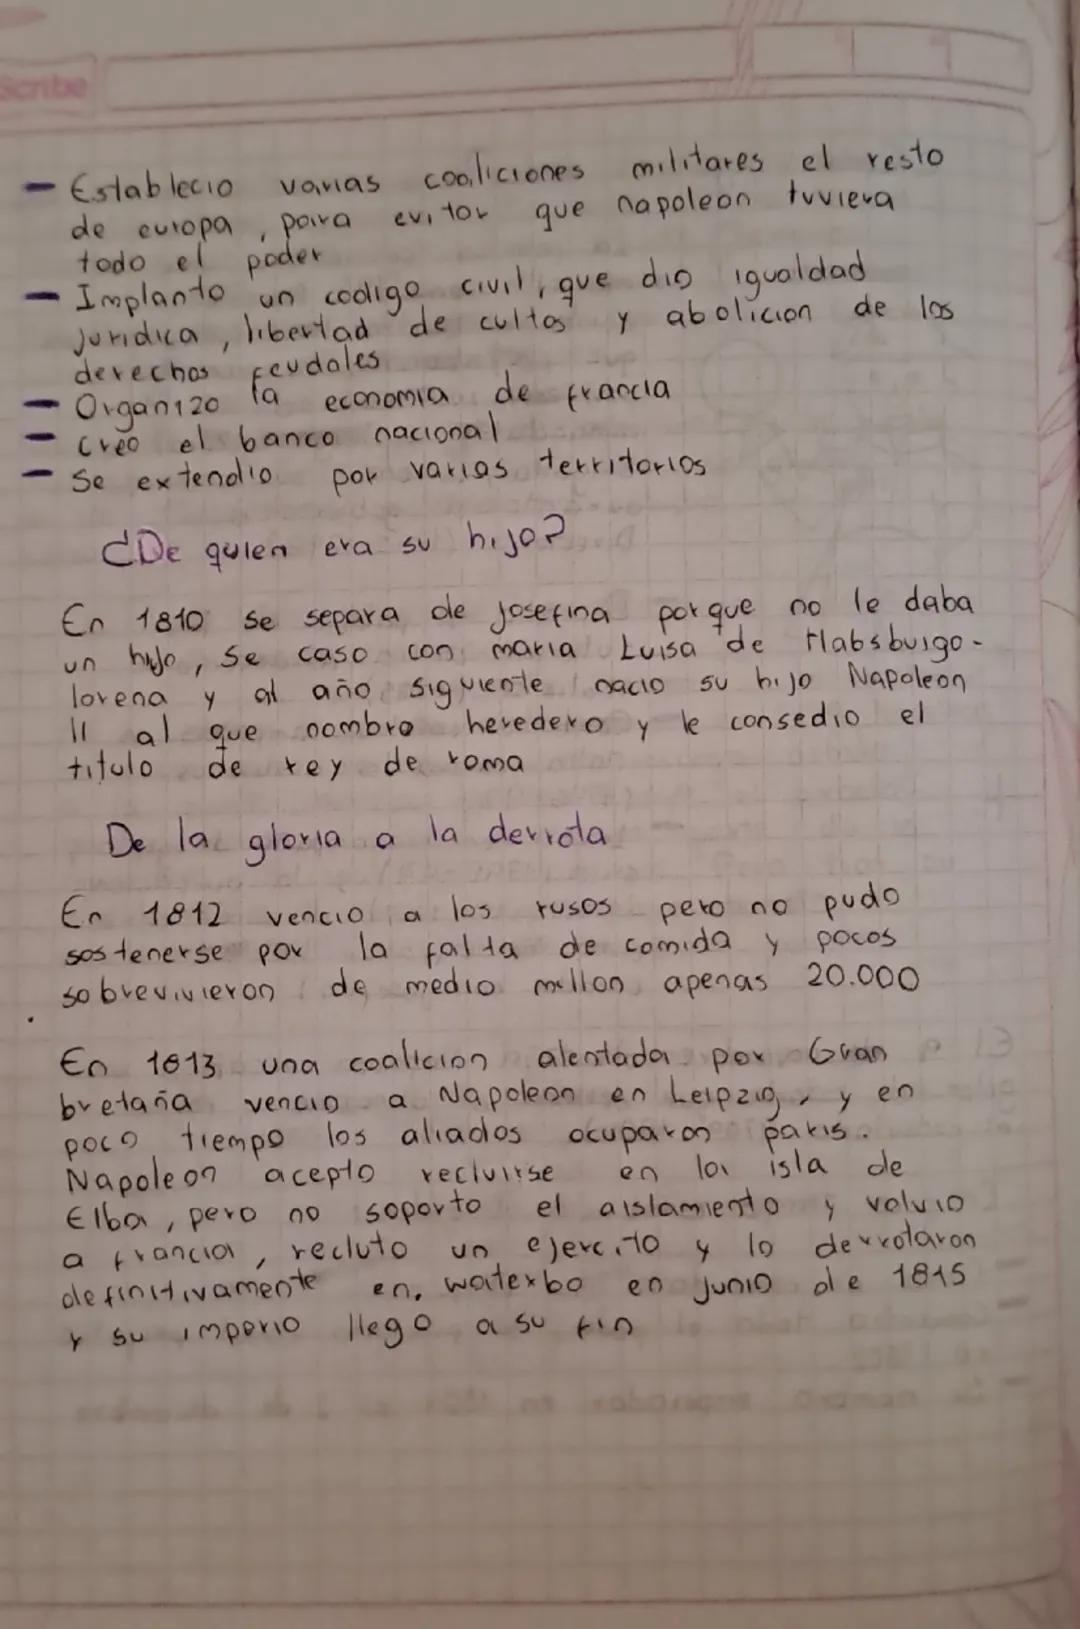 Scribe
- Establecio varias coaliciones militares el resto
de europa, para evitar que napoleon tuviera
todo el poder
- Implanto un codigo civil, que dio igualdad
juridica, libertad de cultos y abolicion de los
derechos feudales
- Organizo la economia de francia
- creo el banco nacional
- Se extendio por varios territorios
¿De quien era su hijo?
En 1810 se separa de josefina porque no le daba
un hijo, se caso con maria Luisa de Habsburgo-
lorena y al año siguiente nacio su hijo Napoleon
II al que nombro heredero y le consedio el
titulo de rey de roma
De la gloria a la derrota
En 1812 vencio a los rusos pero no pudo
sostenerse por la falta de comida y pocos
sobrevivieron de medio millon apenas 20.000
En 1813 una coalicion alentada por Gran
bretaña vencio a Napoleon en Leipzig, y en
poco tiempo los aliados ocuparon paris.
Napoleon acepto recluirse en la isla de
Elba, pero no soporto el aislamiento y volvio
a francia, recluto un ejercito y lo derrotaron
definitivamente en. waterbo en junio de 1815
y su imperio llego a su fin